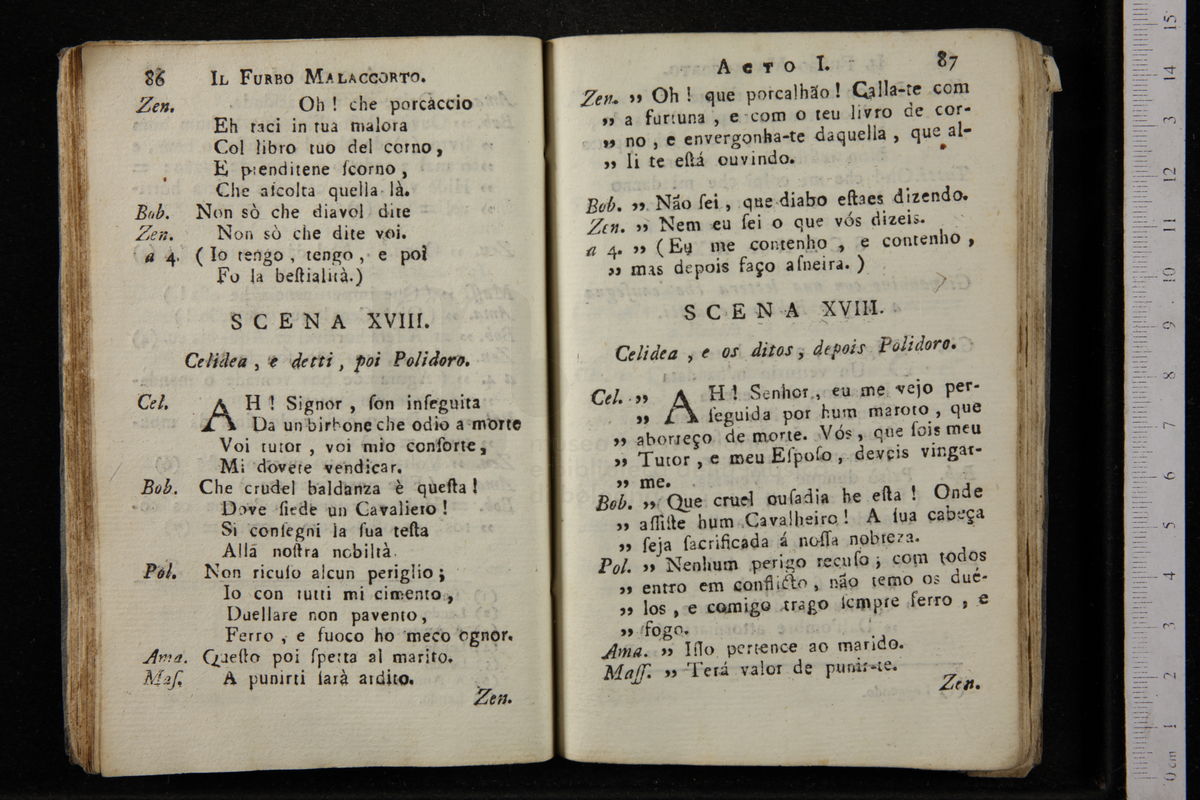 86 IL FURBO MALACCORTO.
Zen. Oh ! che porcaccio
Eh taci in tua malora
Col libro tuo del corno,
E prenditene ſcorno,
Che aſcolta quella là.
Bob. Non sò che diavol dite
Zen. Non sò che dite voi.
a 4. ( Io tengo, tengo, e poi
Fo la beſtialità.)
SCENA XVIII.
Celidea, e detti, poi Polidoro.
Cel. AH ! Signor, ſon inſeguita
Da un birbone che odio a morte
Voi tutor, voi mio conſorte,
Mi dovete vendicar.
Bob. Che crudel baldanza è queſta!
Dove ſiede un Cavaliero!
Si conſegni la ſua teſta
Alla noſtra nobiltà.
Pol. Non ricuſo alcun periglio;
Io con tutti mi cimento,
Duellare non pavento,
Ferro, e fuoco ho meco ognor.
Ama. Queſto poi ſpetta al marito.
Maſ. A punirti ſarà ardito.
Zen.
ACTO I. 87
Zen. „ Oh ! que porcalhão! Calla-te com
„ a furtuna, e com o teu livro de cor-
„ no, e envergonha-te daquella, que al-
„ li te eſtá ouvindo.
Bob. „ Não ſei, que diabo eſtaes dizendo.
Zen. „ Nem eu ſei o que vós dizeis.
a 4. „ (Eu me contenho, e contenho,
„ mas depois faço aſneira.)
SCENA XVIII.
Celidea, e os ditos, depois Polidoro.
Cel. „ AH ! Senhor, eu me vejo per-
„ ſeguida por hum maroto, que
„ aborreço de morte. Vós, que ſois meu
„ Tutor, e meu Eſpoſo, deveis vingar-
„ me.
Bob. „ Que cruel ouſadia he eſta ! Onde
„ aſſiſte hum Cavalheiro! A ſua cabeça
„ ſeja ſacrificada á noſſa nobreza.
Pol. „ Nenhum perigo recuſo; com todos
„ entro em conflicto, não temo os dué-
„ los, e comigo trago ſempre ferro, e
„ fogo.
Ama. „ Iſſo pertence ao marido.
Maſſ. „ Terá valor de punir-te.
Zen.
0 cm 1 2 3 4 5 6 7 8 9 10 11 12 13 14 15